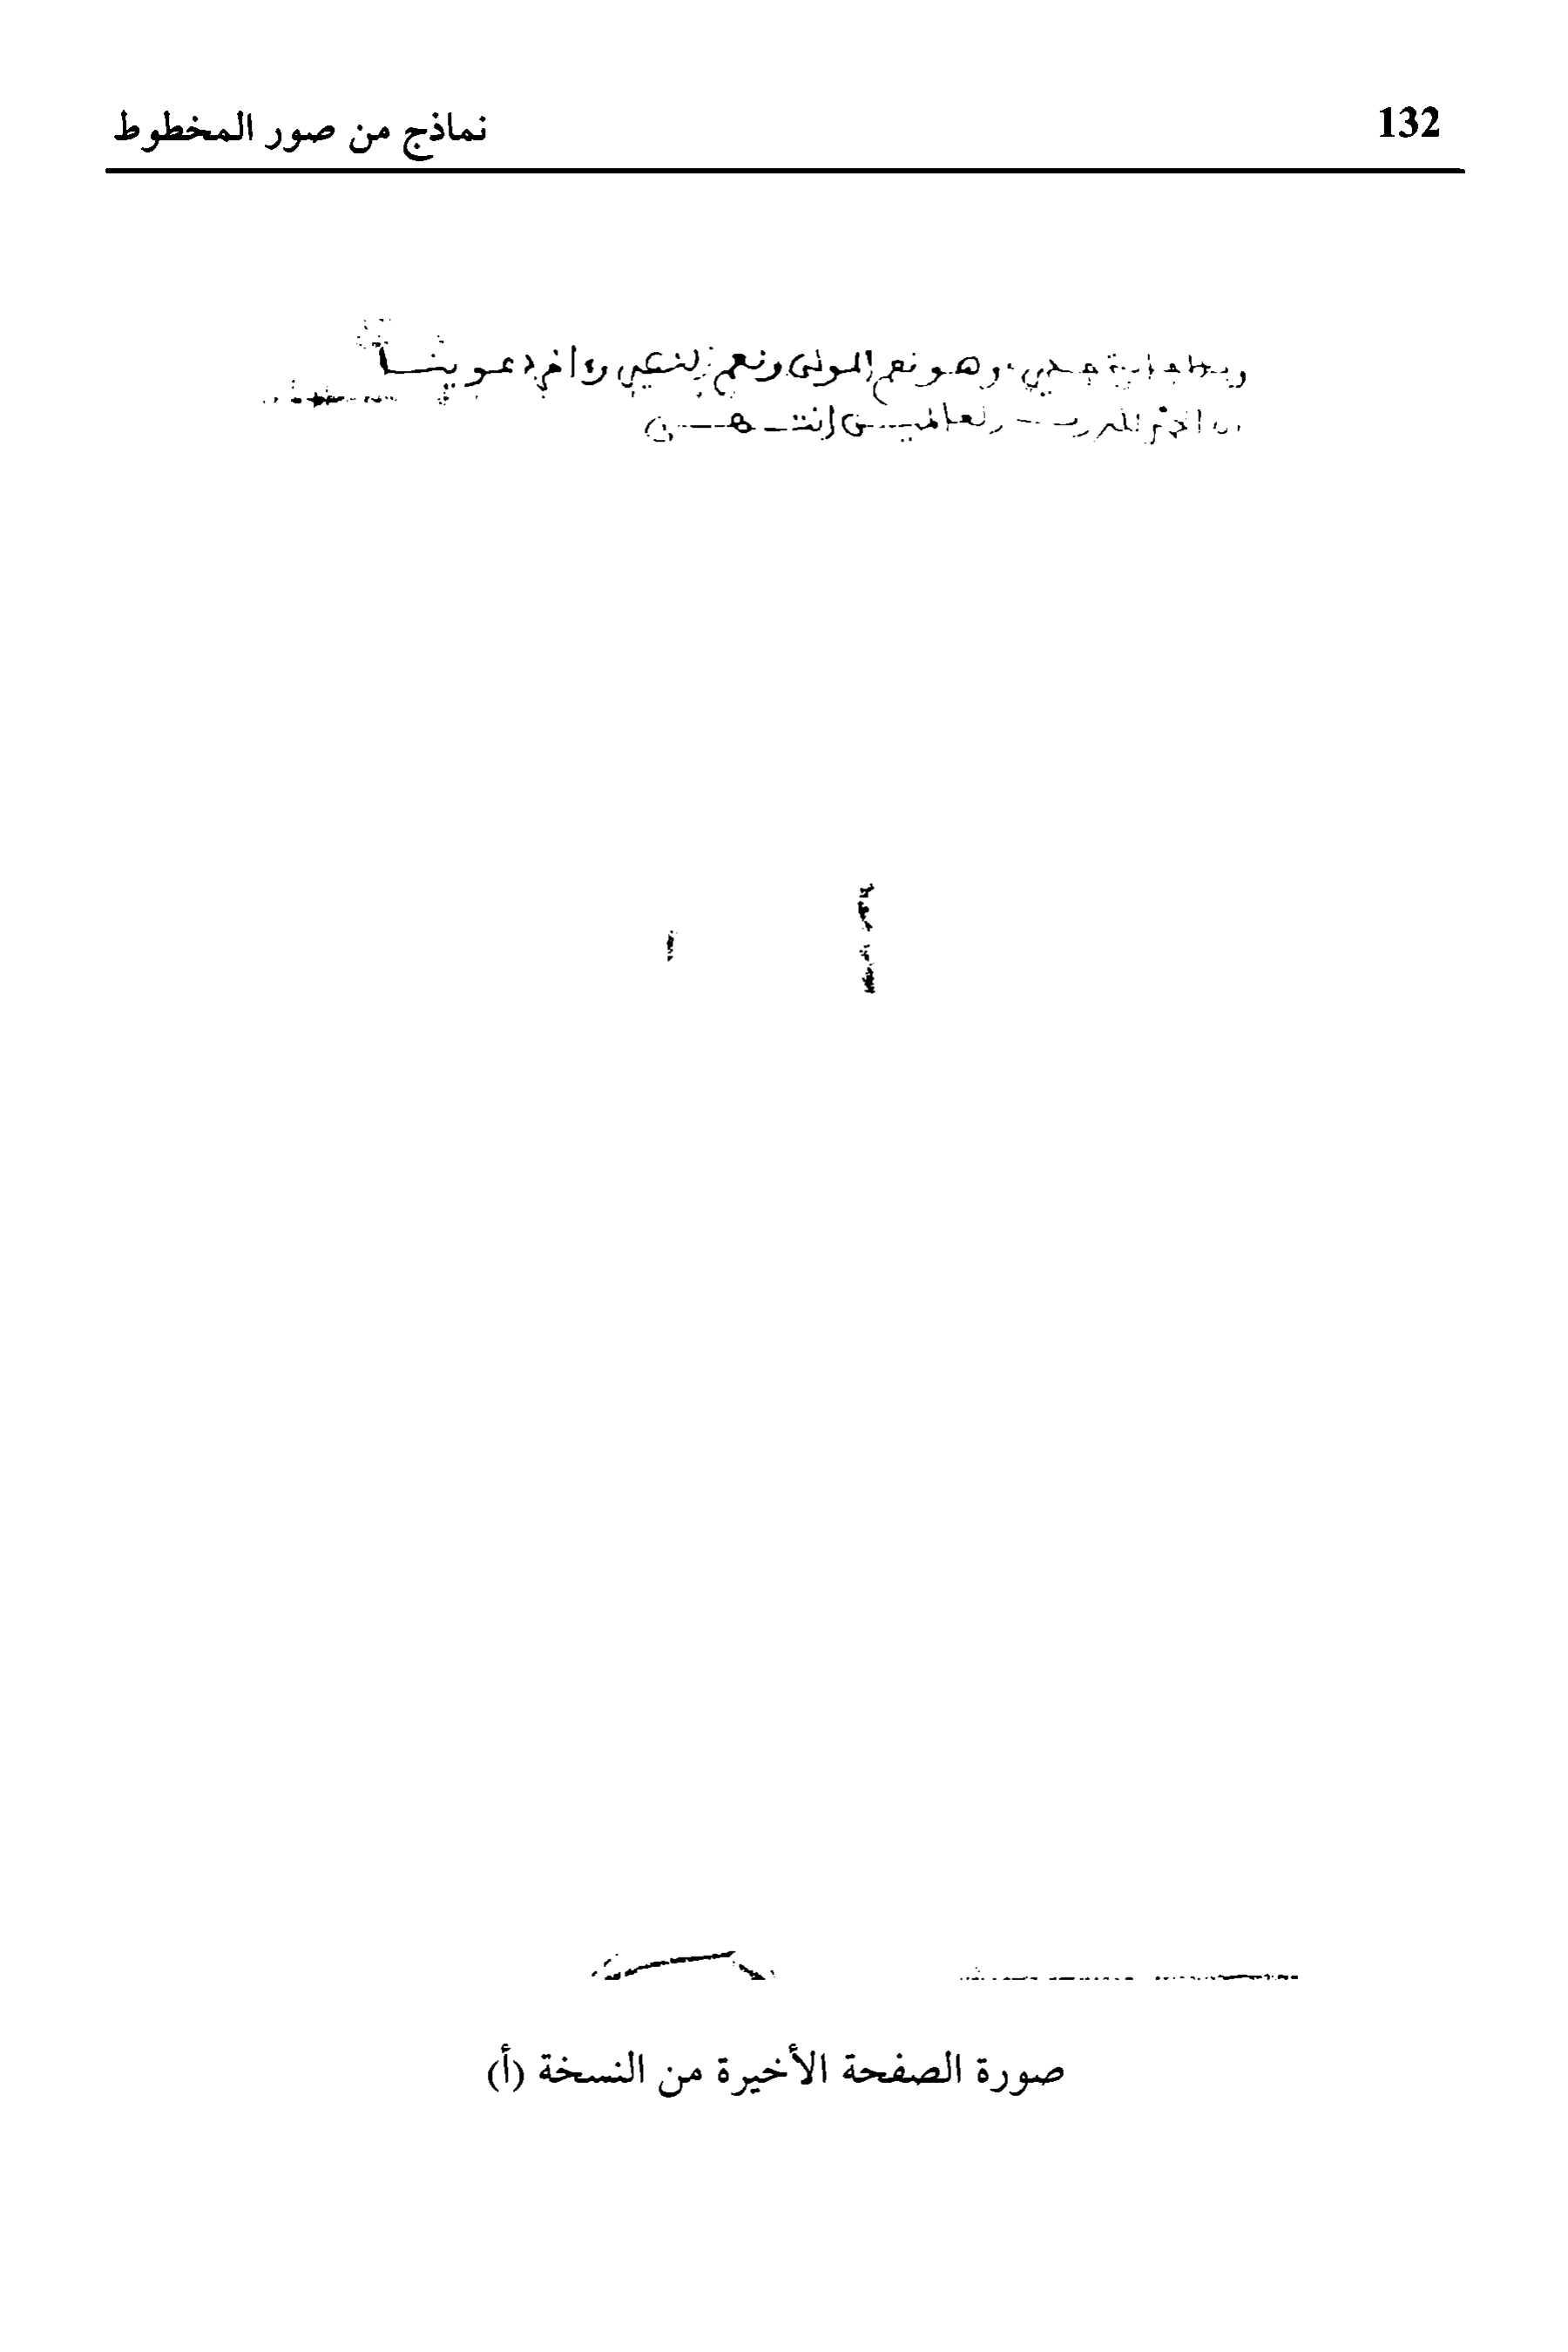 132
نماذج من صور المخطوط
وهو نعم المولى ونعم النصير واخر دعوينا
ان الحمد لله رب العالمين انتهى
صورة الصفحة الأخيرة من النسخة (أ)